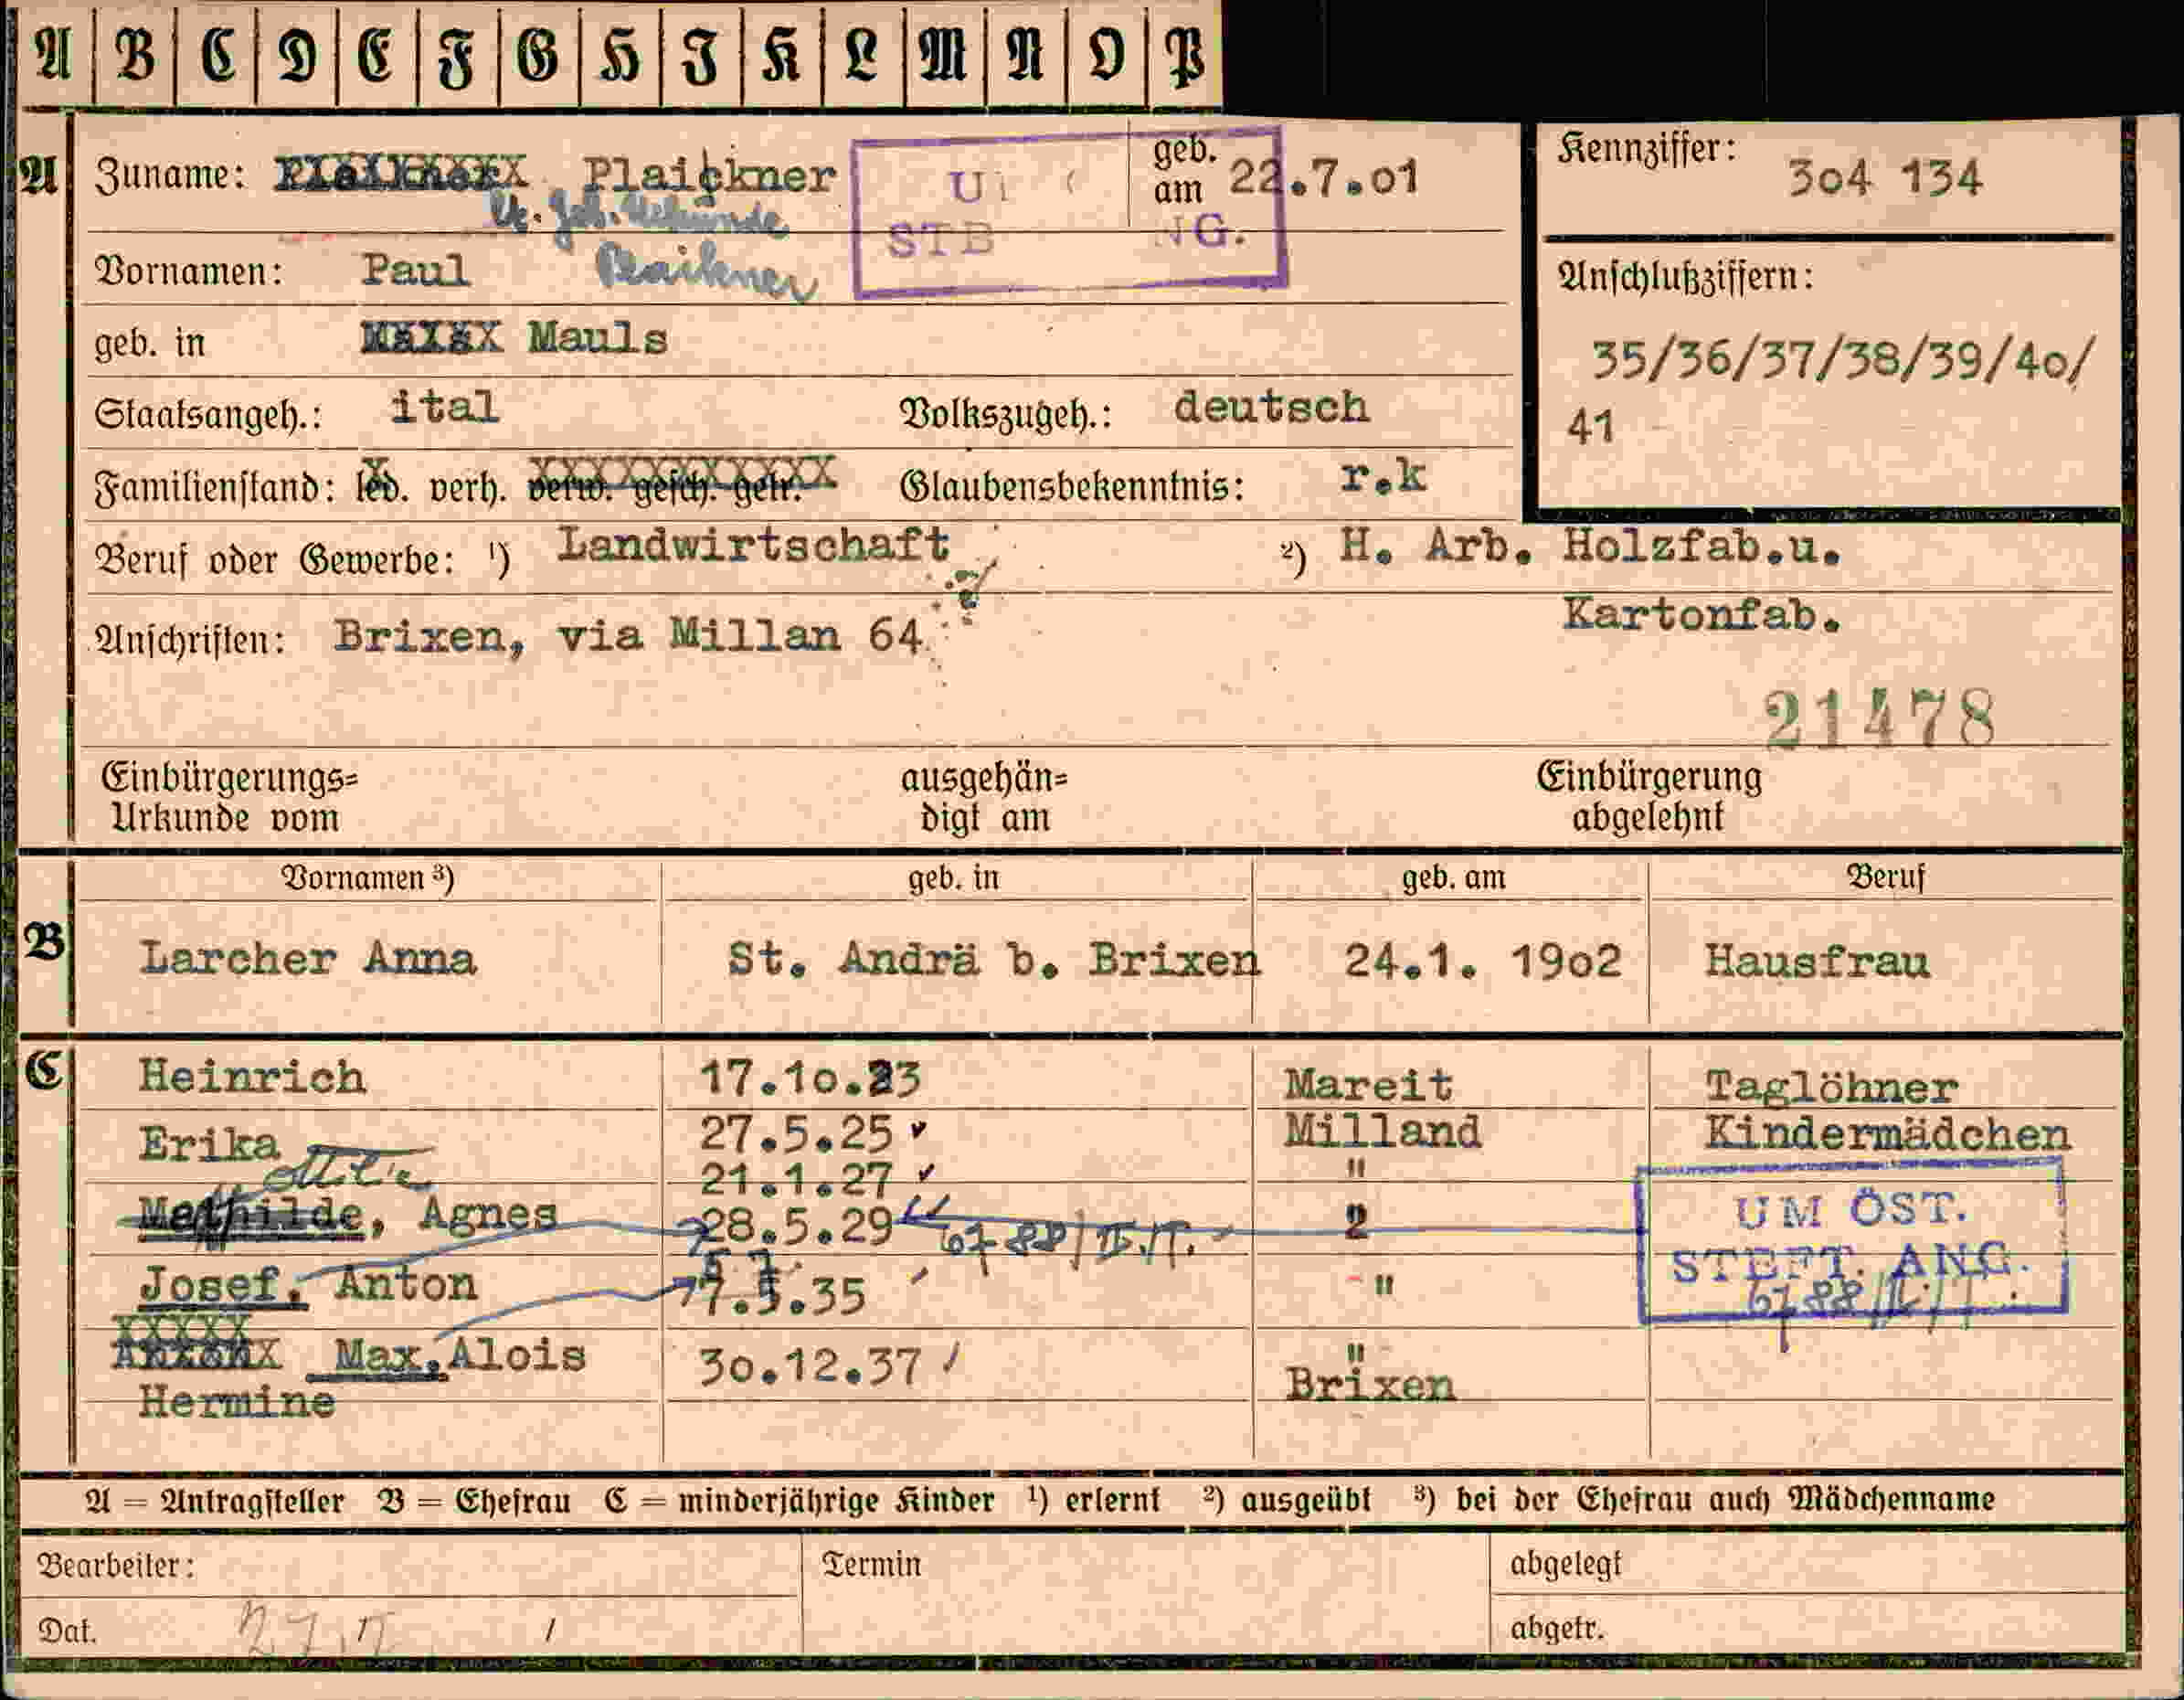 A B C D E F G H I K L M N O P
A Zuname: Plaickner geb. am 22.7.01 Kennziffer: 304 134
Lt. Geb. Urkunde
Vornamen: Paul Plaikner
STB NG.
geb. in Mauls
Anschlußziffern:
35/36/37/38/39/40/
41
Staatsangeh.: ital Volkszugeh.: deutsch
Familienstand: led. verh. verw. gesch. getr. Glaubensbekenntnis: r.k
Beruf oder Gewerbe: 1) Landwirtschaft 2) H. Arb. Holzfab.u.
Kartonfab.
Anschriften: Brixen, via Millan 64
21478
Einbürgerungs=
Urkunde vom
ausgehän=
digt am
Einbürgerung
abgelehnt
Vornamen 3) geb. in geb. am Beruf
B Larcher Anna St. Andrä b. Brixen 24.1. 1902 Hausfrau
C Heinrich 17.10.23 Mareit Taglöhner
Erika 27.5.25 Milland Kindermädchen
21.1.27 "
Mathilde, Agnes 28.5.29 6788/II.11. 2
UM ÖST.
STEFT. ANG.
Josef, Anton 35 "
Max, Alois 30.12.37 "
Hermine Brixen
A = Antragsteller B = Ehefrau C = minderjährige Kinder 1) erlernt 2) ausgeübt 3) bei der Ehefrau auch Mädchenname
Bearbeiter: Termin abgelegt
Dat. abgetr.